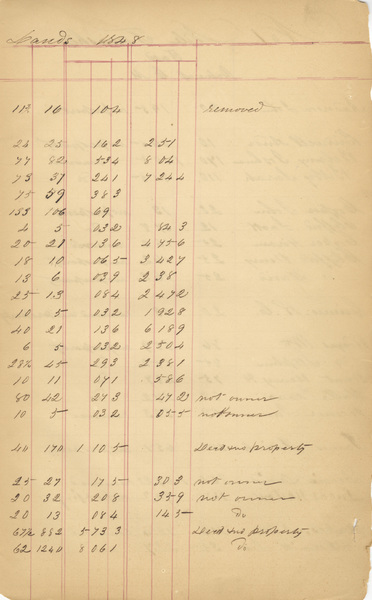 Lands 1828
112 16 102 removed
25 162 251
77 82 534 8 04
73 37 241 7 244
75 59 383
153 106 69
4 5 032 843
20 21 136 4 756
18 10 065 3 427
13 6 039 2 38
25 13 084 2 472
10 5 032 1 928
40 21 136 6 189
6 5 032 2 504
28½ 45 293 2 381
10 11 071 586
80 42 273 472 not owner
10 5 032 055 not owner
40 170 1 105 Dead no property
25 27 175 302 not owner
20 32 208 359 not owner
20 13 084 145 Do
67½ 882 5 733 Dead no property
62 1240 8 061 Do